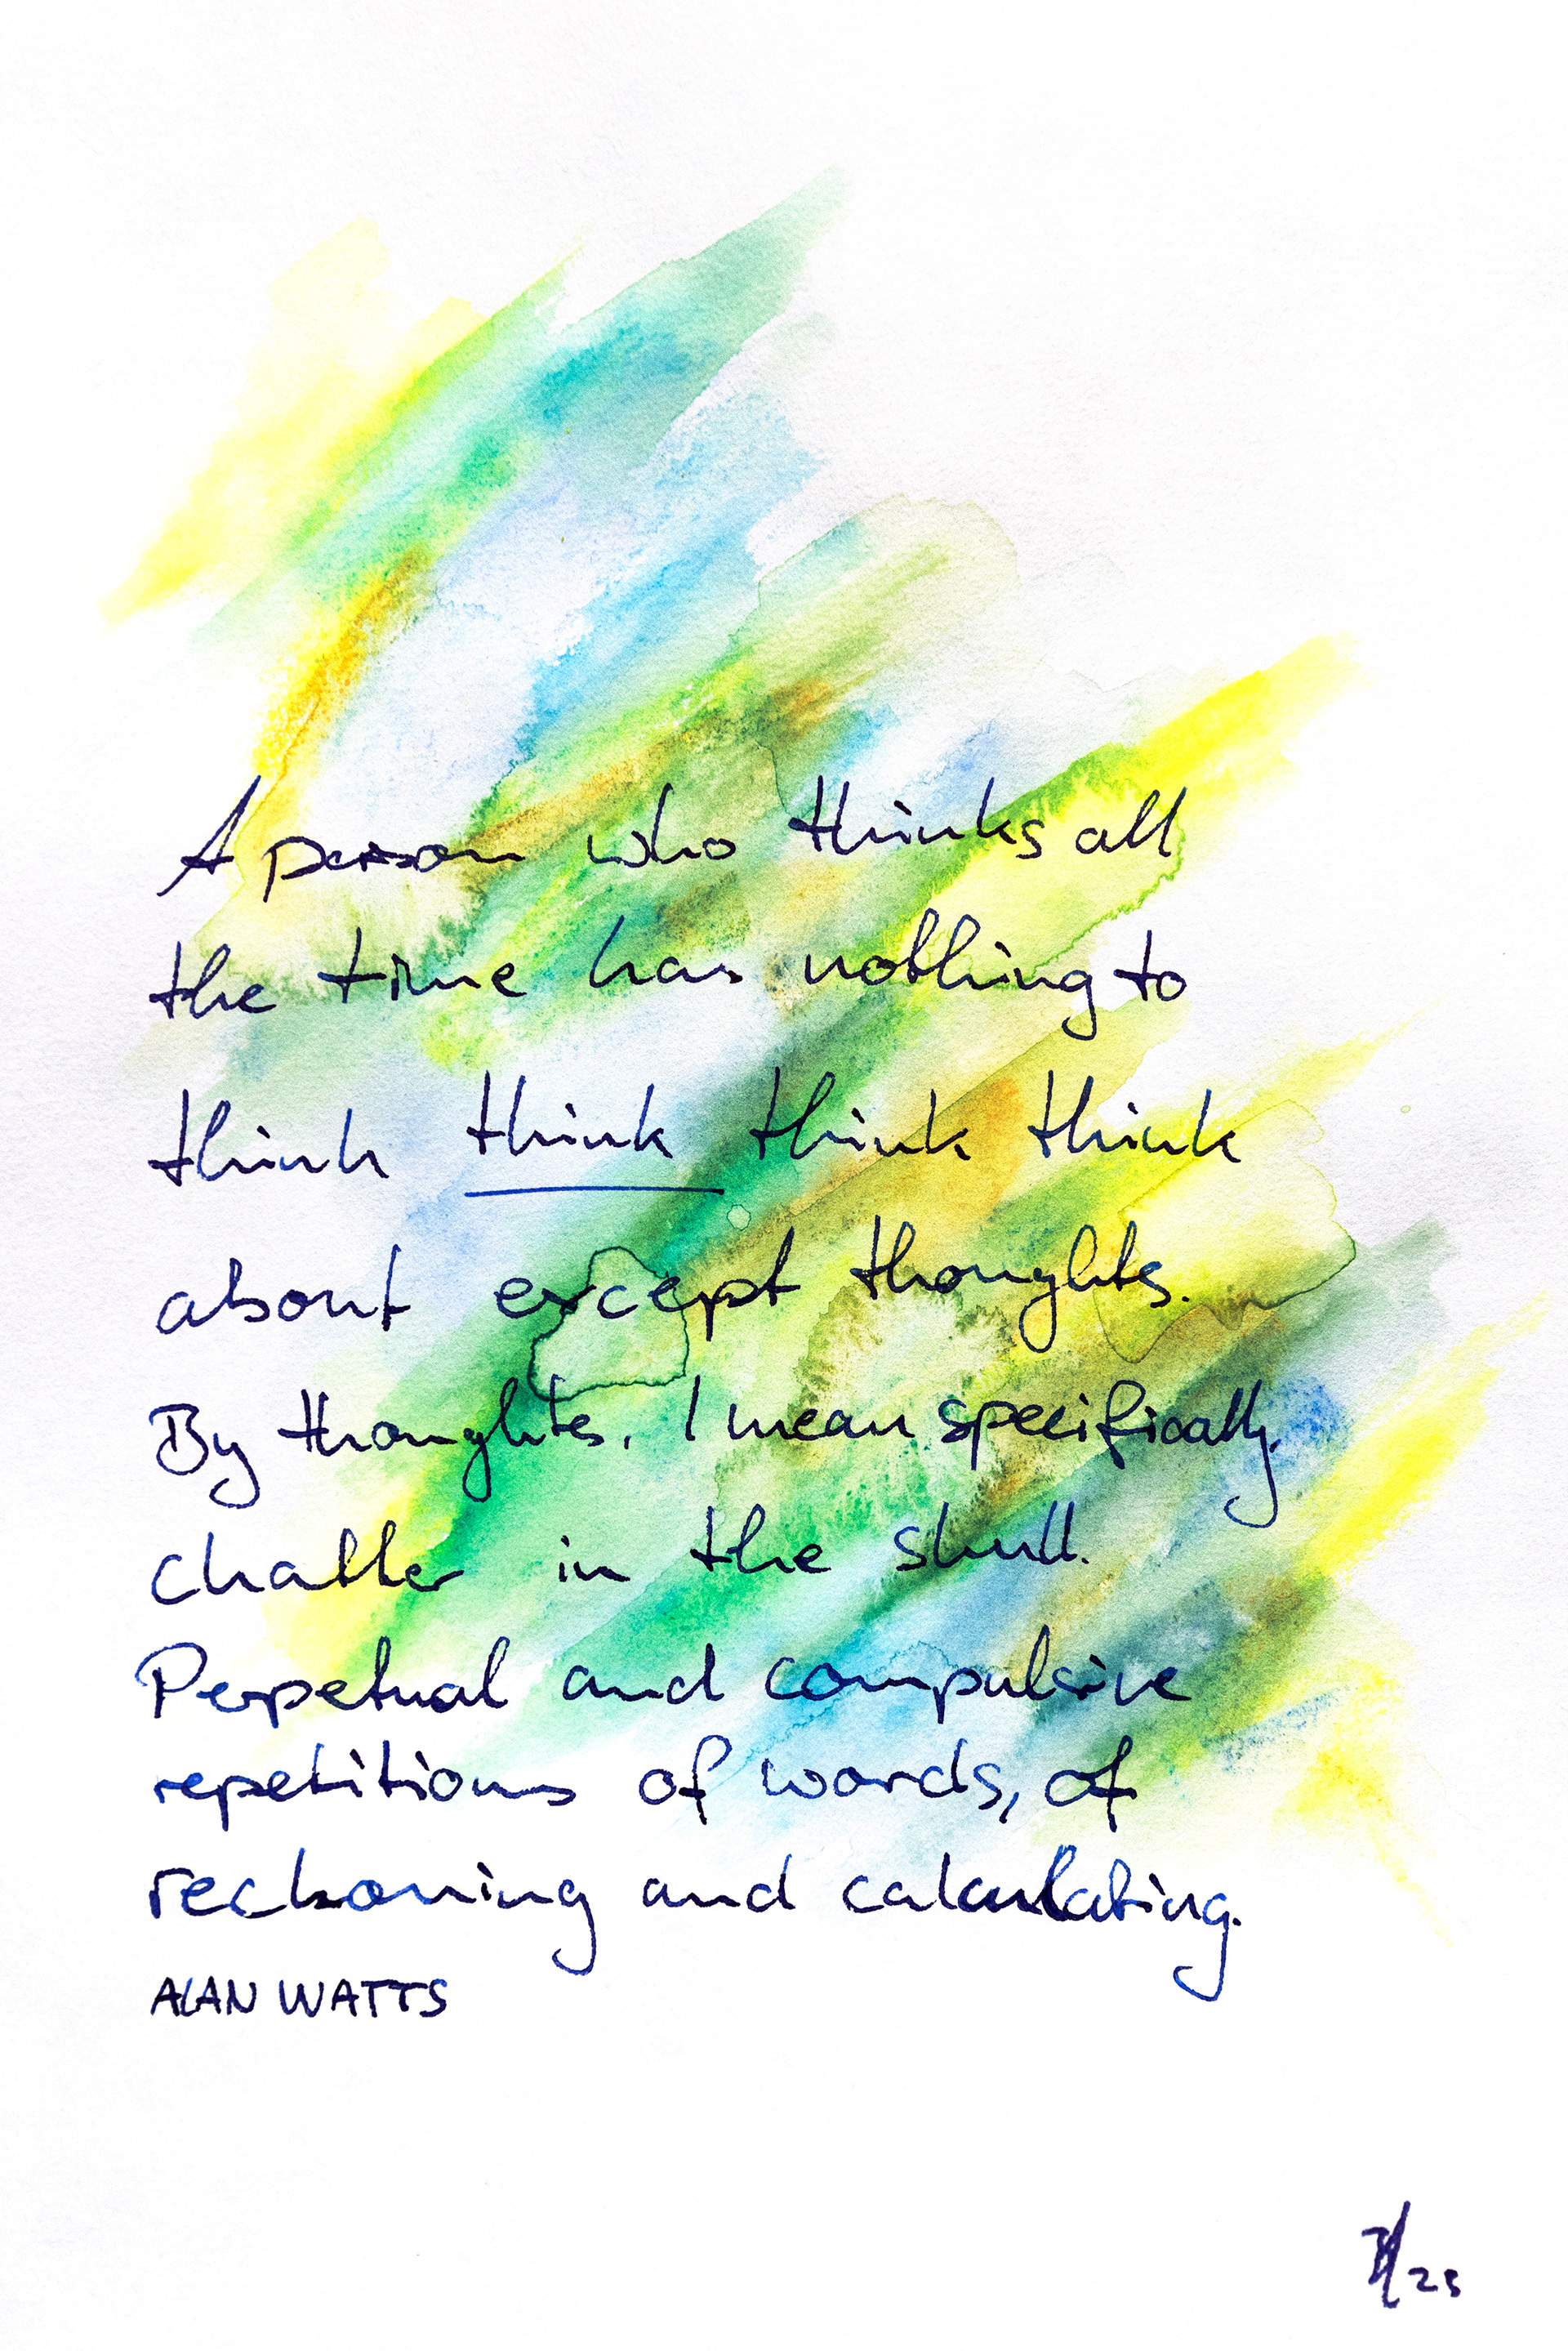 A person who thinks all
the time has nothing to
think think think think
about except thoughts.
By thoughts, I mean specifically,
chatter in the skull.
Perpetual and compulsive
repetitions of words, of
reckoning and calculating.
ALAN WATTS
25